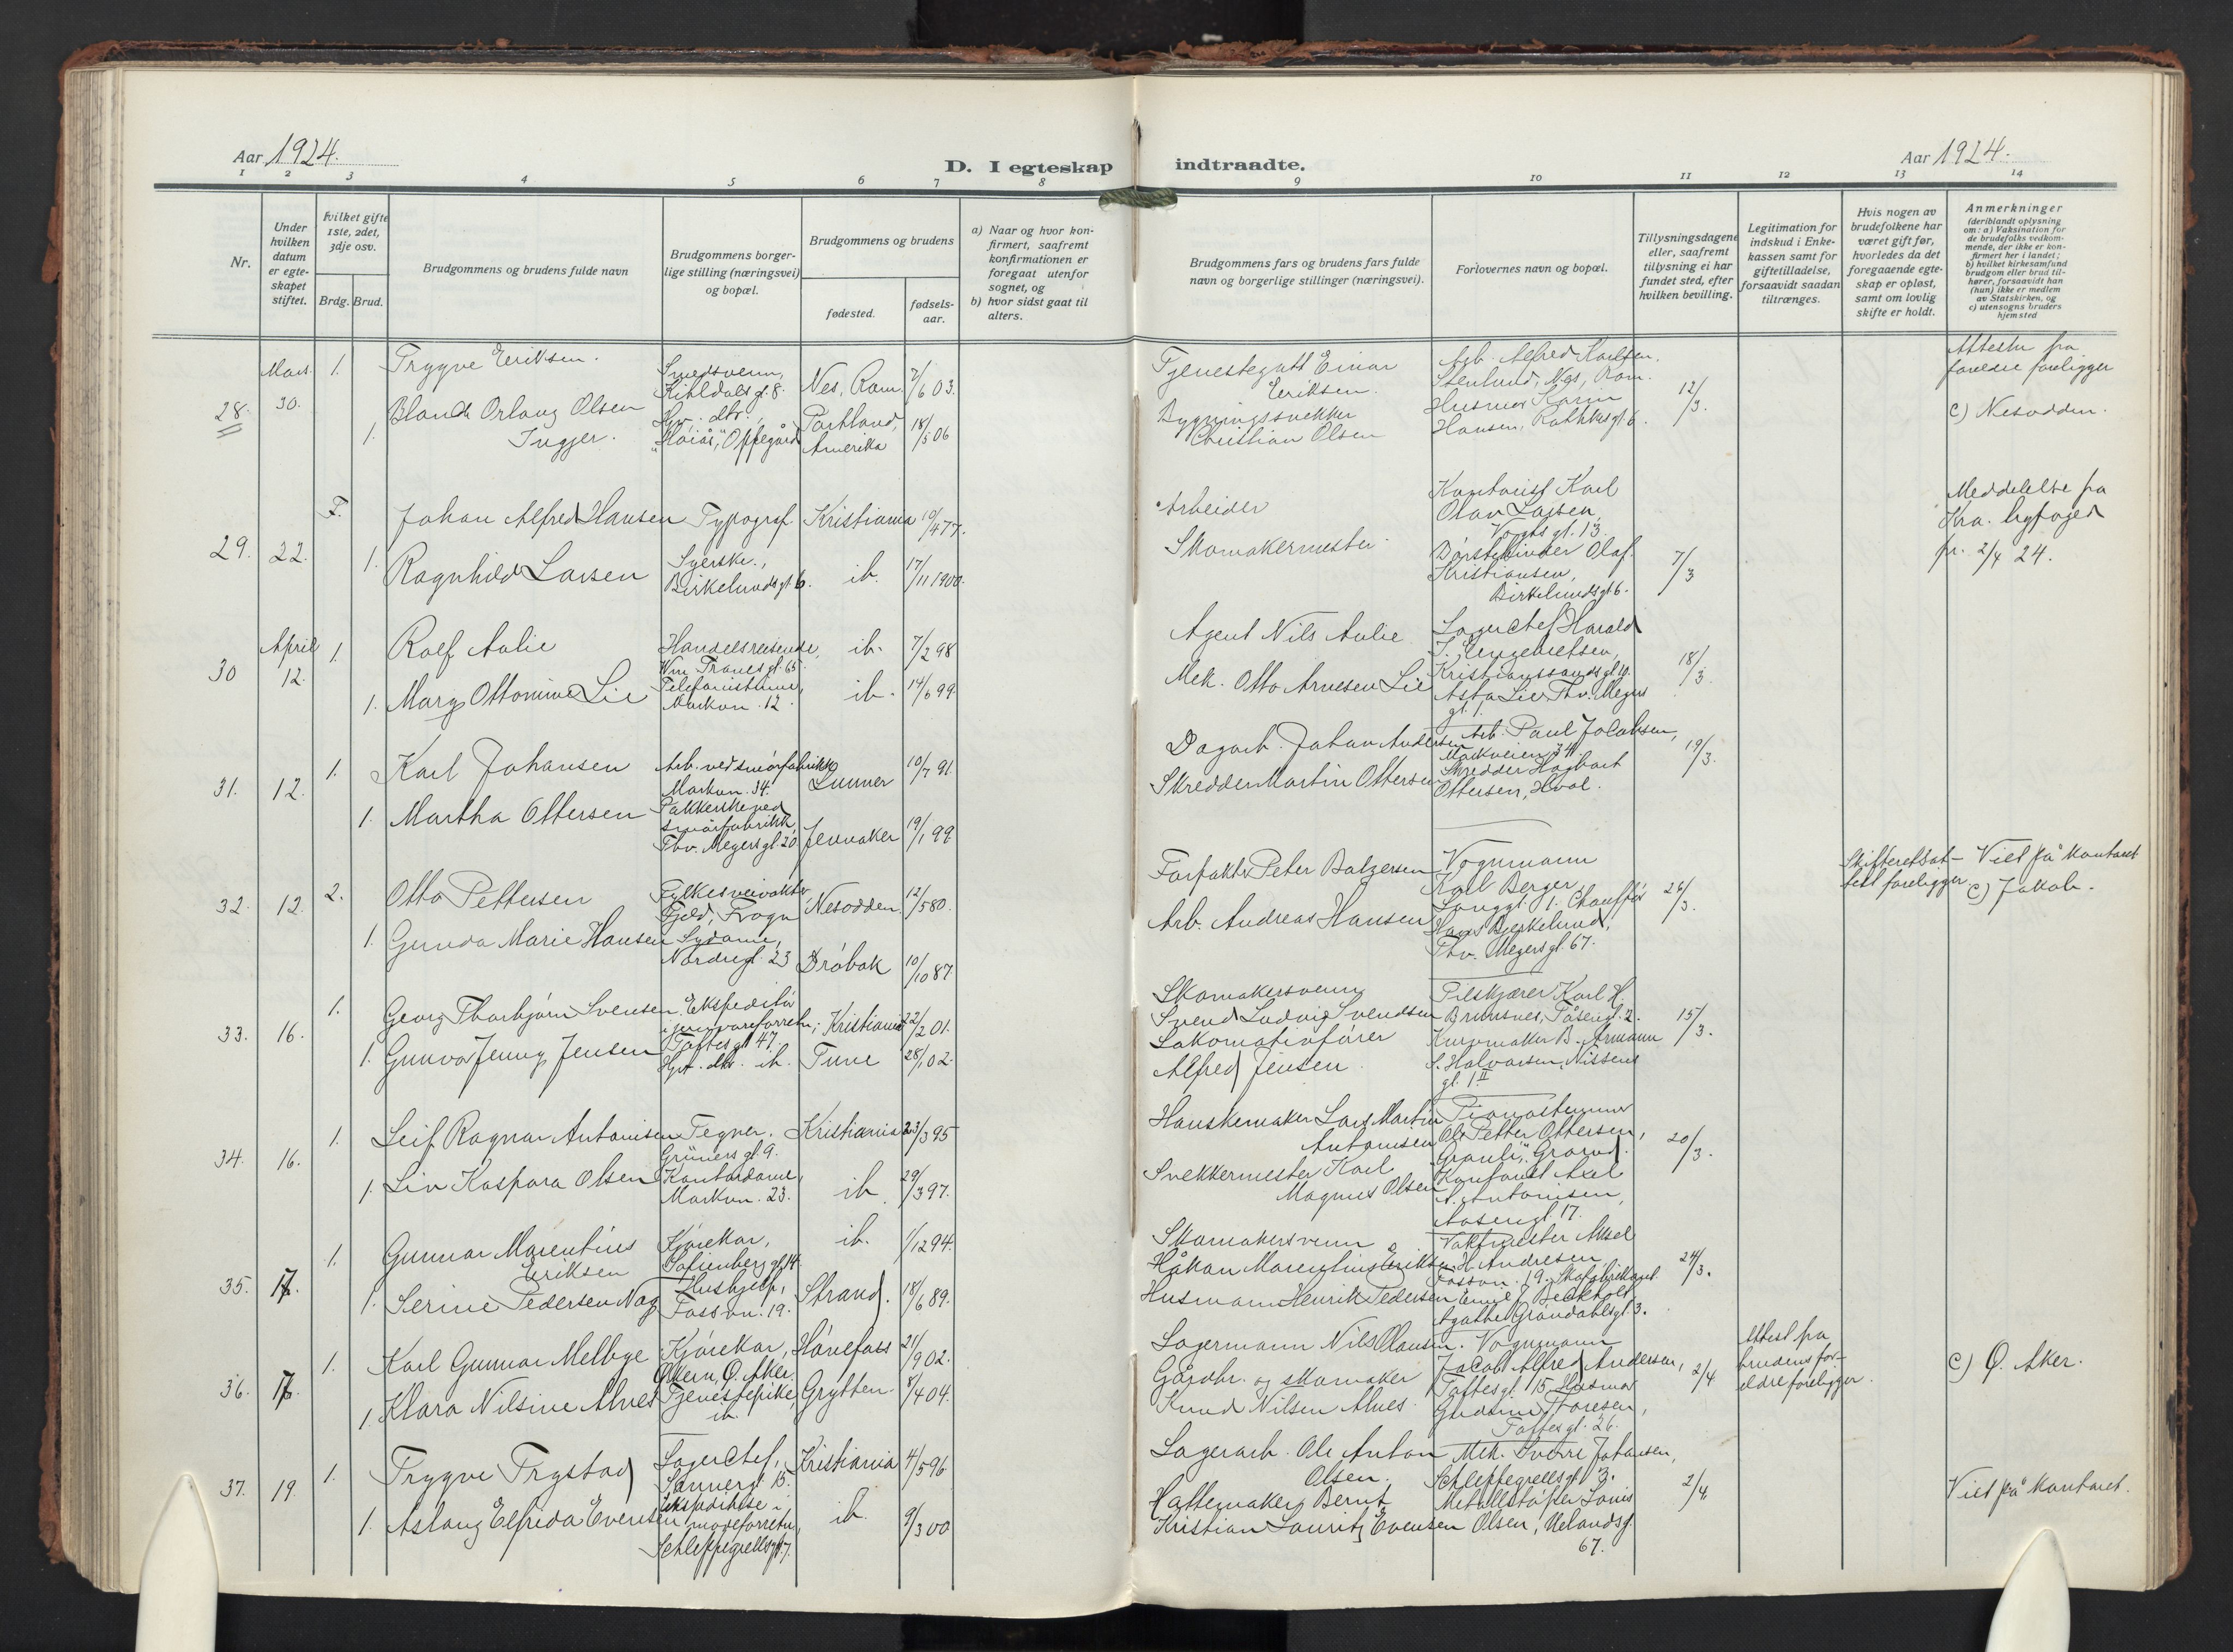 Aar 1924.
D. I egteskap indtraadte.
Aar 1924.
1 2 3 4 5 6 7 8 9 10 11 12 13 14
Nr.
Under hvilken datum er egteskapet stiftet.
Hvilket gifte 1ste, 2det, 3dje osv.
Brdg. Brud.
Brudgommens og brudens fulde navn
Brudgommens borgerlige stilling (næringsvei) og bopæl.
Brudgommens og brudens
fødested.
fødselsaar.
a) Naar og hvor konfirmert, saafremt konfirmationen er foregaat utenfor sognet, og
b) hvor sidst gaat til alters.
Brudgommens fars og brudens fars fulde navn og borgerlige stillinger (næringsvei).
Forlovernes navn og bopæl.
Tillysningsdagene eller, saafremt tillysning ei har fundet sted, efter hvilken bevilling.
Legitimation for indskud i Enkekassen samt for giftetilladelse, forsaavidt saadan tiltrænges.
Hvis nogen av brudefolkene har været gift før, hvorledes da det foregaaende egteskap er opløst, samt om lovlig skifte er holdt.
Anmerkninger
(deriblandt oplysning om: a) Vaksination for de brudefolks vedkommende, der ikke er konfirmert her i landet; b) hvilket kirkesamfund brudgom eller brud tilhører, forsaavidt han (hun) ikke er medlem av Statskirken, og c) utensogns bruders hjemsted
28. Mars 30. 1. Trygve Eriksen. Smedsvenn, gt. 8. Nes, Rom. 2/6 03.
1. Olsen Inggjer. Hgv. dtr., "Høiås", Oppegård Portland, Amerika 18/5 06
Tjenestegutt Einar Eriksen.
Bygningssnekker Christian Olsen
Arb. Alfred Karlsen, Stenlund, Nes, Rom.
Husmor Karin Hansen, Rathkesgt. 6.
12/3.
Attester fra foreldre foreligger
c) Nesodden.
29. 22. F. Johan Alfred Hansen Typograf. Kristiania 10/4 77.
1. Ragnhild Larsen Syerske, Birkelundsgt. 6. ib. 17/11 1900.
Arbeider
Skomakermester
Kontorist Karl Olav Larsen, Vogtsgt. 13.
Børstebinder Olaf Kristiansen, Birkelundsgt 6.
7/3
Meddelelse fra Kra. byfoged fr. 2/4 24.
30 April 12. 1. Rolf Aulie Handelsreisende, Wm. Tranesgt. 65. ib. 7/2 98
1. Marg. Ottomine Lie Telefonistinne, Markvn. 12. ib. 14/6 99.
Agent Nils Aulie
Mek. Otto Arnesen Lie
Lagerchef Harald J. Engebretsen, Kristianssandsgt. 10.
Asta Lie, Thv. Meyersgt. 1.
18/3.
31. 12. 1. Karl Johansen Arb. ved smørfabrikk Markvn. 34. Lunner 10/7 91.
1. Martha Ottersen Pakkerske ved smørfabrikk, Thv. Meyersgt. 20, Jevnaker 19/1 99.
Dagarb. Johan Andersen
Skredder Martin Ottersen
Arb. Paul Jacobsen, Markveien 34.
Skredder Hagbart Ottersen, Hval.
19/3.
32. 12. 2. Otto Pettersen Fylkesveivokter, Fjeld, Frogn Nesodden. 12/5 80.
1. Gunda Marie Hansen Sydame, Nordregt. 23 Drøbak 10/10 87
Forfakter Peter Balzersen
Arb. Andreas Hansen
Vognmann Karl Berger, Langgt. 1. Chauffør Hans Bjerkelund, Thv. Meyersgt. 67.
26/3.
Skifteretsattest foreligger
Viet på kontoret
c) Jakob.
33. 16. 1. Georg Thorbjørn Svensen. Ekspeditør i jernvareforretn., Toftesgt. 47. Kristiania 22/2 01.
1. Gunvor Jenny Jensen Hgv. dtr. ib. Tune 28/1 02.
Skomakersvenn Svend Ludvig Svendsen
Lokomotivfører Alfred Jensen.
Pilskjærer Karl H. Brunsnes, Tåsengt. 2.
Kurvmaker B. Armann S. Halvorsen, Nissens gt. 1 II
15/3.
34. 16. 1. Leif Ragnar Antonisen Tegner. Grünersgt. 9. Kristiania 23/3 95
1. Liv Kaspara Olsen Kontordame, Markvn. 23. ib. 29/3 97.
Hanskemaker Lars Martin Antonisen
Snekkermester Karl Magnus Olsen
Pianostemmer Ole Petter Ottersen, "Granli", Grorud.
Kontorist Axel A. Antonisen, Aasengt. 17.
20/3.
35. 17. 1. Gunnar Marentius Eriksen Kjørekar, Sofienberggt. 14. ib. 1/12 94.
1. Serine Pedersen Nag Hushjelp, Fossvn. 19. Strand. 18/6 89.
Skomakersvenn Håkon Marentius Eriksen
Husmann Henrik Pedersen
Vaktmester Aksel H. Andresen, Fossvn. 19. Skofabrikant Emil J. Beckholt Agathe Grøndahlsgt. 3.
24/3.
36. 17. 1. Karl Gunnar Melbye Kjørekar, Økern, Ø. Aker. Hønefoss 21/9 02.
1. Klara Nilsine Alnes Tjenestepike, ib. Grytten. 8/4 04.
Lagermann Nils Olausen.
Gårdbr. og skomaker Knud Nilsen Alnes.
Vognmann Jacob Alfred Andersen, Toftesgt. 15. Husmor Gudrun Thoresen, Toftesgt. 26.
2/4
Attest fra brudens foreldre foreligger.
c) Ø. Aker.
37. 19. 1. Trygve Trystad Lagerchef, Sannergt. 15. Kristiania 4/5 96.
1. Aslaug Elfrida Evensen Ekspeditrise i moteforretn, Schleppegrellsgt. 7. ib. 9/3 00
Lagerarb. Ole Anton Olsen.
Hattemaker Bernt Kristian Lauritz Evensen
Mek. Sverre Johansen, Schleppegrellsgt. 3.
Metallstøper Louis Olsen, Uelandsg. 67.
2/4
Viet på kontoret.